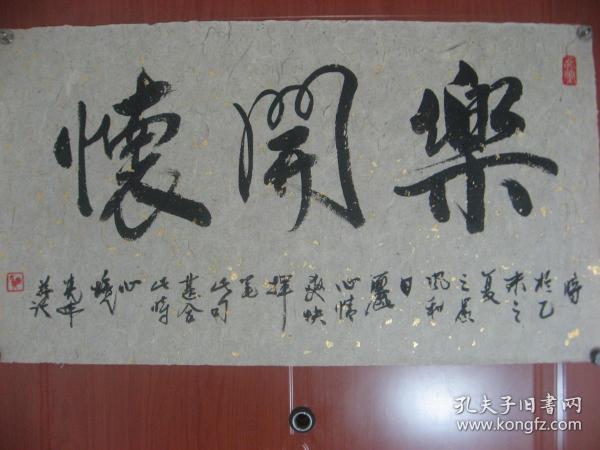 樂開懷
時
於乙
未之
夏
之晨
風和
日
麗
心情
爽快
揮
毫
此句
甚合
此時
心
境
光华
並記
孔夫子旧书网
www.kongfz.com